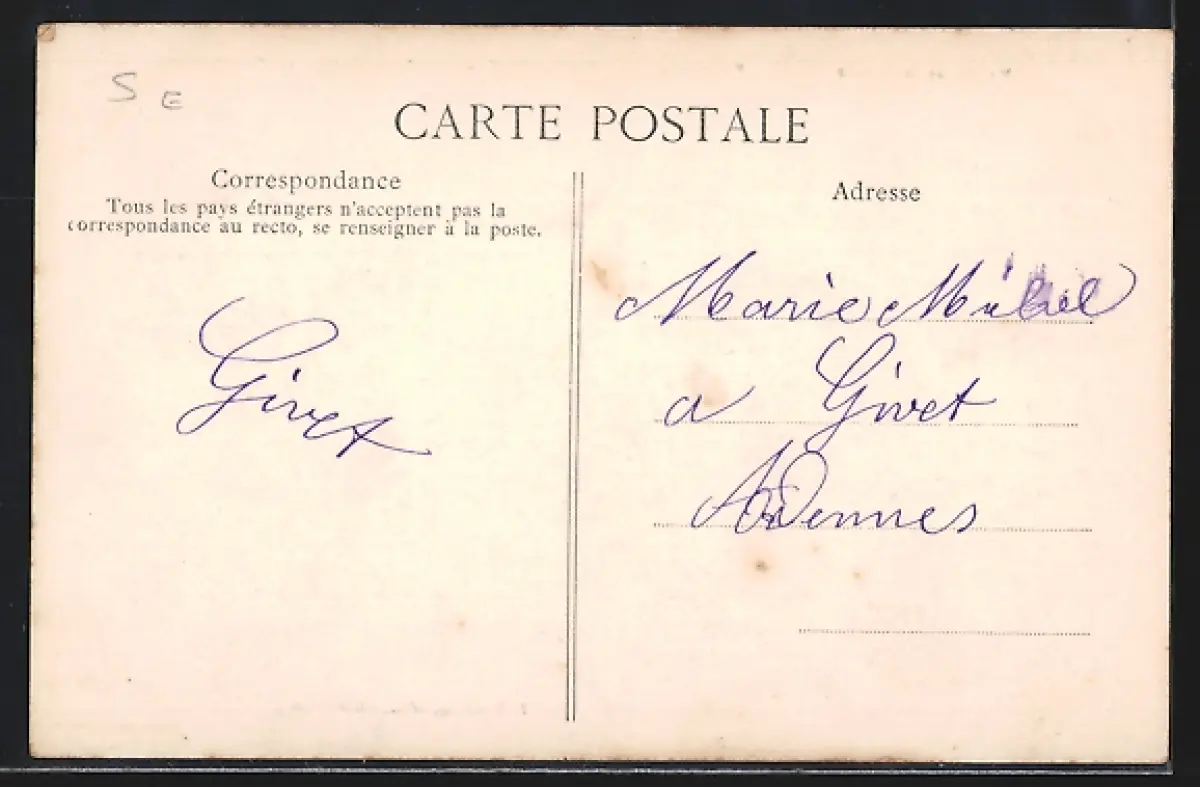 S E
CARTE POSTALE
Correspondance
Tous les pays étrangers n'acceptent pas la
correspondance au recto, se renseigner à la poste.
Givet
Adresse
Marie
a Givet
Ardennes